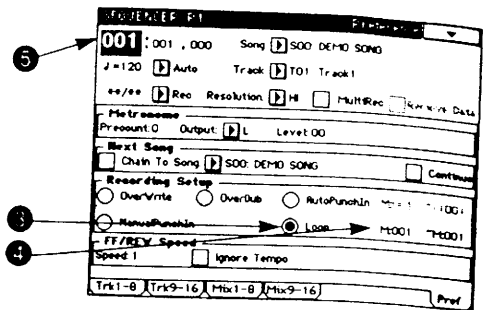 SEQUENCER P1 Preference
5 001 : 001 . 000 Song S00: DEMO SONG
♩=120 Auto Track T01: Track1
**/** Rec Resolution HI MultiRec Remove Data
Metronome
Precount:0 Output: L Level:00
Next Song
Chain To Song S00: DEMO SONG Continue
Recording Setup
OverWrite OverDub AutoPunchIn
3 ManualPunchIn Loop M:001 ~M:001
4 FF/REW Speed
Speed:1 Ignore Tempo
Trk1-8 Trk9-16 Mix1-8 Mix9-16 Pref